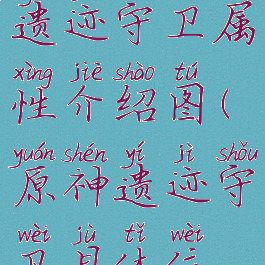 遗迹守卫属
xìng jiè shào tú
性介绍图(
yuán shén yí jì shǒu
原神遗迹守
wèi jù tǐ wèi
卫具体位